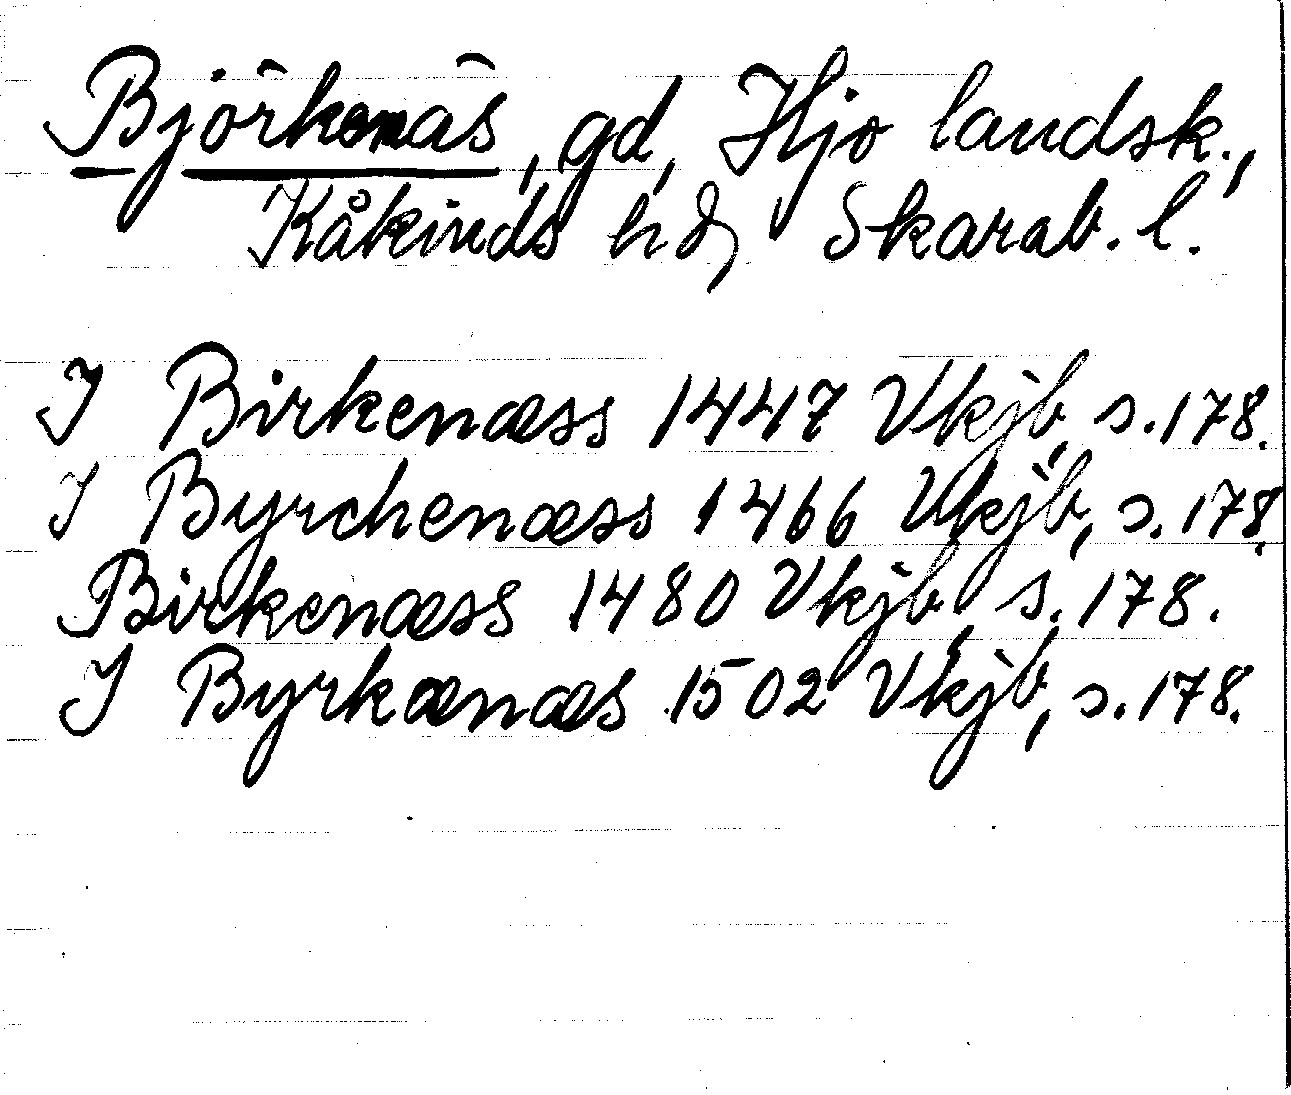 Björkenäs, gd, Hjo landsk.,
Kåkinds hd, Skarab. l.
J Birkenæss 1447 Vkjb, s. 178.
J Byrchenæss 1466 Vkjb, s. 178.
Birkenæss 1480 Vkjb, s. 178.
J Byrkænæs 1502 Vkjb, s. 178.